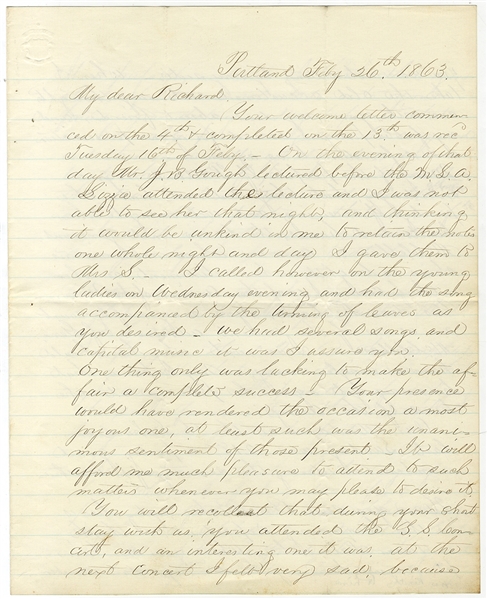 Portland Feby 26th 1863.
My dear Richard.
Your welcome letter commen-
ced on the 4th & completed on the 13th was recd
Tuesday 16th of Feby — On the evening of that
day Mr. J. B Gough lectured before the M. L. A.
Lizzie attended the lecture and I was not
able to see her that night, and thinking
it would be unkind in me to retain the notes
one whole night and day I gave them to
Mrs S. — I called however on the young
ladies on Wednesday evening and had the song
accompanied by the turning of leaves as
you desired — we had several songs and
capital music it was I assure you.
One thing only was lacking to make the af-
fair a complete success — Your presence
would have rendered the occasion a most
joyous one, at least such was the unani-
mous sentiment of those present — It will
afford me much pleasure to attend to such
matters whenever you may please to desire it.
You will recollect that during your short
stay with us, you attended the S. S. Con-
cert, and an interesting one it was, at the
next concert I felt very sad, because